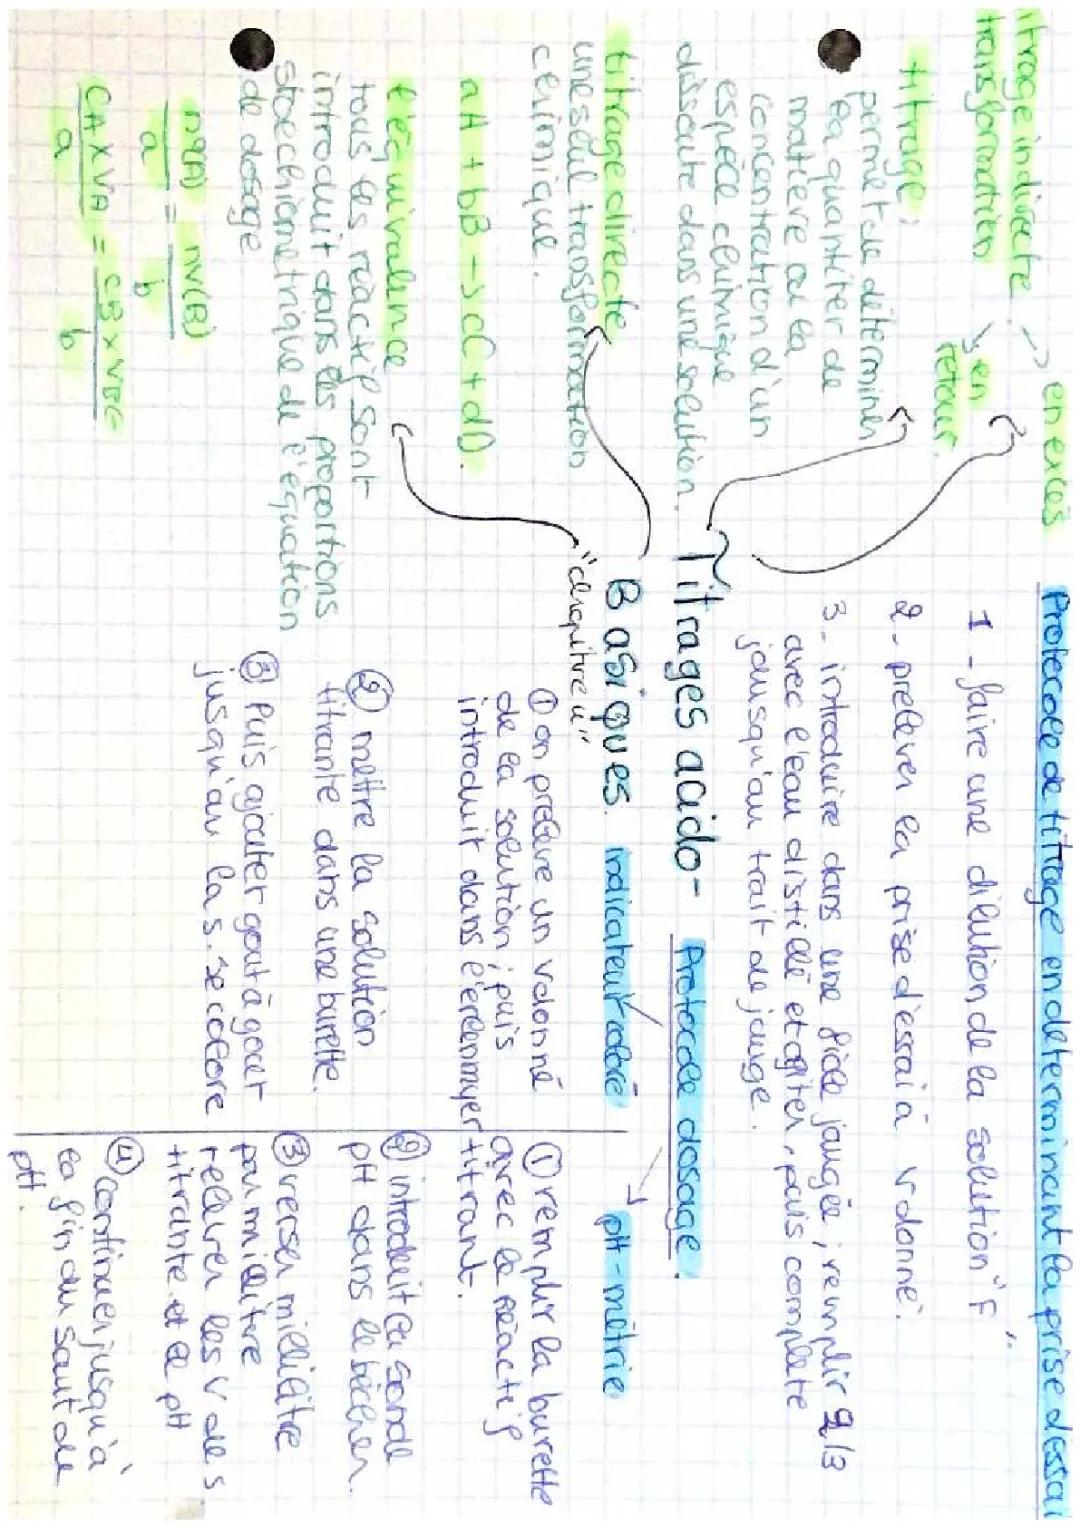 titrage indirecte → en excès
transformation ↘ en
retour.
titrage:
permet de déterminer
la quantiter de
matière ou la
concentration d'un
espèce chimique
dissoute dans une solution.
titrage directe
une seul transformation
ceimique.
aA + bB → cC + dD.
l'équivalence
tous les réactif sont
introduit dans les proportions
stoechiometrique de l'équation
de dosage
n0(A)/a = nV(B)/b
CA x VA/a = CB x VBE/b
Titrages acido-
Basiques.
Protocole de titrage en determinant la prise d'essai
1 - faire une dilution de la solution "F".
2 - prelever la prise d'essai à V donné.
3 - introduire dans une fiole jaugée, remplir 2/3
avec l'eau distillé et agiter, puis complète
jousqu'au trait de jauge.
Protocole dosage.
indicateur coloré
① on prelève un V donné
de la solution, puis
introduit dans l'erlenmayer
② mettre la solution
titrante dans une burette.
③ Puis ajouter gout à gout
jusqu'au la s. se colore
pH-métrie
① remplir la burette
avec le réactif
titrant.
② introduit la sonde
pH dans le bécher.
③ verser millilitre
par millitre
relever les V de s
titrante et le pH
④ continuer jusqu'à
la fin du saut de
pH.